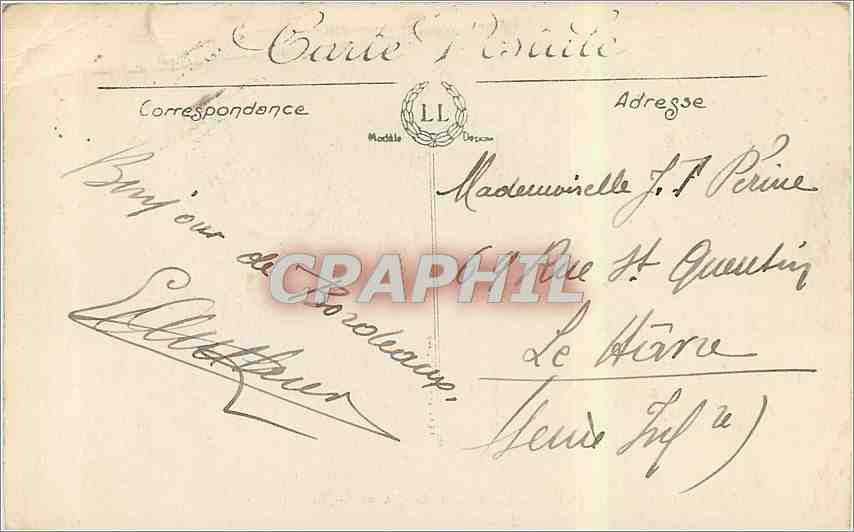 Carte Postale
Correspondance
LL
Modèle Déposé
Adresse
Bonjour
de
Bordeaux.
Mademoiselle J. Périne
69 Rue St Quentin
Le Hâvre
(Seine Infre)
CPAPHIL